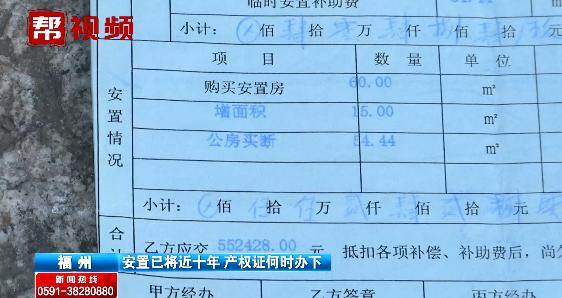 帮视频
临时安置补助费
小计： 佰 拾 万 仟 佰 拾 元
项 目 数 量 单 位
购买安置房 60.00 m²
增面积 15.00 m²
公房买断 54.44 m²
安置情况
小计： 佰 拾 万 仟 佰 拾
合
乙方应交 552428.00 元 抵扣各项补偿、补助费后，尚欠
甲方经办 乙方签章 丙方经办
福州 安置已将近十年 产权证何时办下
新闻热线
0591-38280880